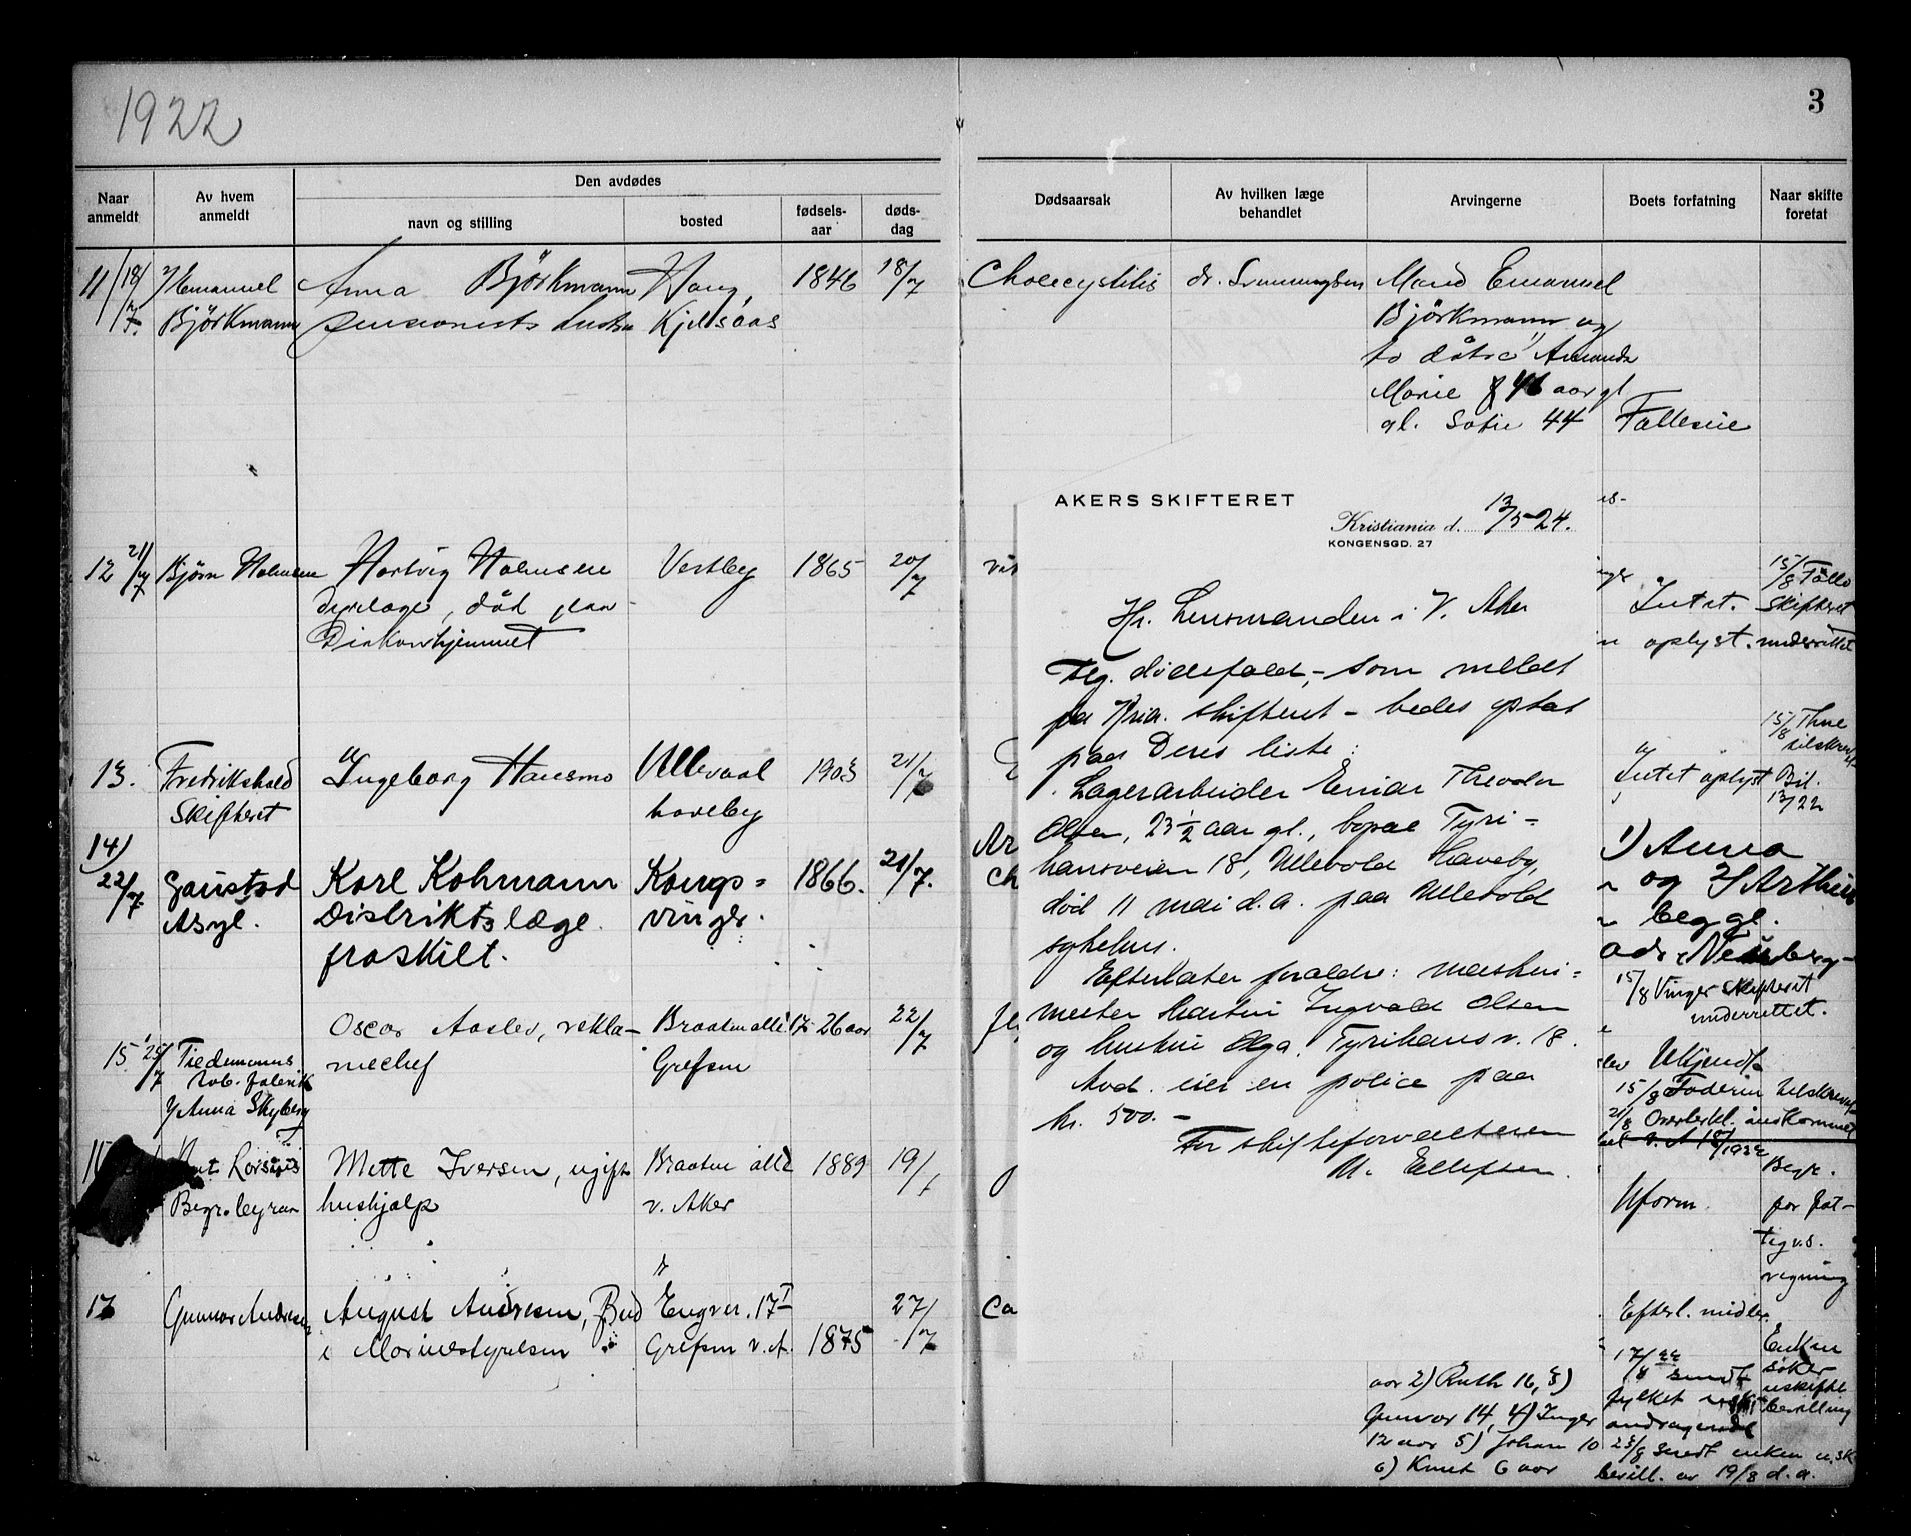 1922
3
Naar anmeldt
Av hvem anmeldt
Den avdødes
navn og stilling
bosted
fødsels-aar
døds-dag
Dødsaarsak
Av hvilken læge behandlet
Arvingerne
Boets forfatning
Naar skifte foretat
11/ 18/7. Emanuel Anna Björkmann Haug, 1846 18/7
Björkmann pensionists hustru Kjelsaas
Cholecystitis dr. Mand Emanuel
Björkmann og
to døtre 1) Amanda
Marie 46 aar gl
gl. Sofie 44 Fælleseie
12 21/7 Bjørn Holmsen Hartvig Holmsen Vestby 1865 20/7
Dyrlæge, død paa
Diakonhjemmet
Intet
oplyst.
15/8 Follo
Skifteret
underrettet
13. Fredrikshald Ingeborg Hansmo Ullevaal 1903 21/7
Skifteret haveby
Intet oplyst
15/8 Thue
tilskrev
Bil.
13/22
14) 22/7 Gaustad Karl Kohmann Kongs= 1866. 21/7.
Asyl. Distriktslæge vinger.
fraskilt.
1) Anna
og 2) Arthur
begge gl.
adr. Neuberg-
15/8 Vinger skifteret
underrettet.
Oscar Aaslev, rekla- Braaten allé 17 26 aar 22/7
15 25/7 Tiedemanns mechef Grefsen
tob. fabrik
v/ Anna Skyberg
Ukjendt
15/8 Faderen tilskrevet
21/8 indkommet
Mette Iversen, ugift Braaten allé 1889 19/
Begr.byraa hushjælp v. Aker
Uform.
Begr.
for fat-
tigv.s.
regning
17 Gunnar Andresen August Andresen, Bud Engver. 17 I 27/7
i Marinestyrelsen Grefsen v. A. 1875
Efterl. midler
Enken
søker
uskifte
bevilling
17/8 22 sendt
fylket
andragende
23/8 sendt enken u.sk
bevill. av 19/8 d.a.
aar 2) Ruth 16, 3)
Gunvor 14, 4) Inger
12 aar 5) Johan 10
6) Knut 6 aar
AKERS SKIFTERET
Kristiania d. 13/5-24.
KONGENSGD. 27
Hr. Lensmanden i V. Aker
Flg. dødsfald, - som meldt
pa Kria. skifteret - bedes optat
paa Deres liste:
Lagerarbeider Einar Theodor
Olsen, 23 1/2 aar gl., bopæl Tyri-
hansveien 18, Ullevold Haveby,
død 11 mai d.a. paa Ullevold
sykehus.
Efterlater forældre: maskin=
mester Martin Ingvald Olsen
og hustru Olga. Tyrihansv. 18.
Avd. eier en police paa
kr. 500.-
For skifteforvalteren
M. Ellefsen.